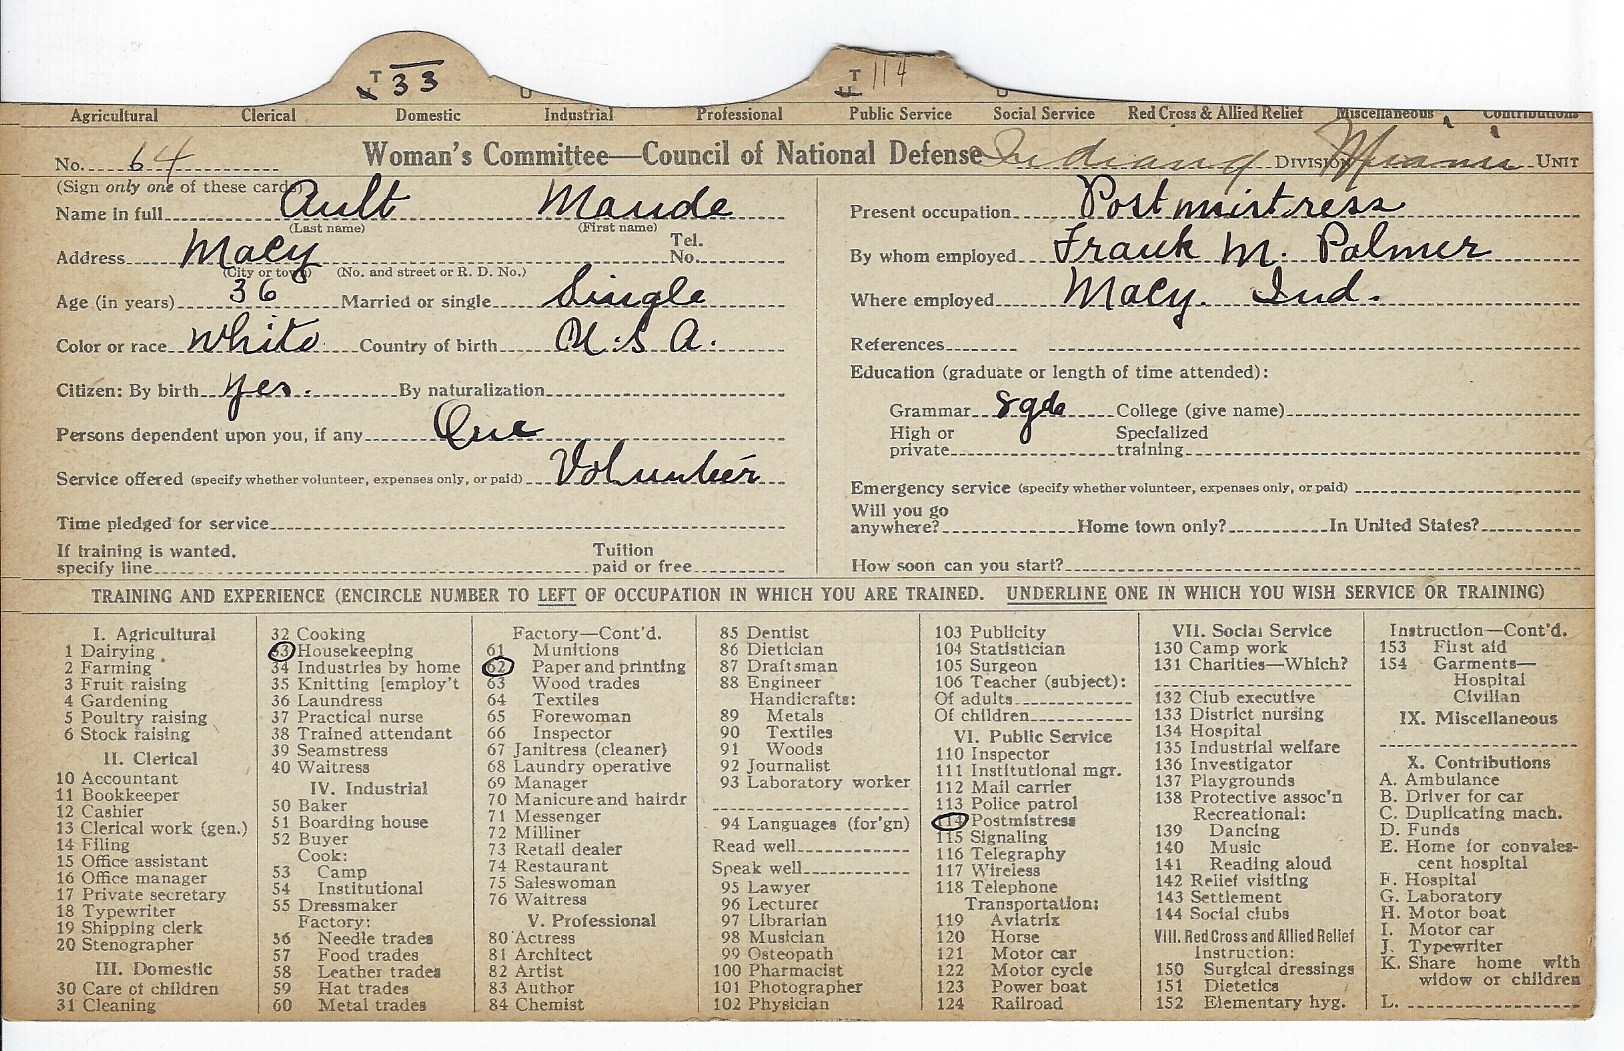 T 33
T 114
Agricultural Clerical Domestic Industrial Professional Public Service Social Service Red Cross & Allied Relief Miscellaneous Contributions
No. 64 Woman's Committee—Council of National Defense Indiana DIVISION Miami UNIT
(Sign only one of these cards)
Name in full Ault Maude
(Last name) (First name)
Address Macy Tel. No.
(City or town) (No. and street or R. D. No.)
Age (in years) 36 Married or single Single
Color or race White Country of birth U.S.A.
Citizen: By birth yes. By naturalization
Persons dependent upon you, if any One
Service offered (specify whether volunteer, expenses only, or paid) Volunteer
Time pledged for service
If training is wanted, Tuition
specify line paid or free
Present occupation Postmistress
By whom employed Frank M. Palmer
Where employed Macy. Ind.
References
Education (graduate or length of time attended):
Grammar 8gde College (give name)
High or Specialized
private training
Emergency service (specify whether volunteer, expenses only, or paid)
Will you go
anywhere? Home town only? In United States?
How soon can you start?
TRAINING AND EXPERIENCE (ENCIRCLE NUMBER TO LEFT OF OCCUPATION IN WHICH YOU ARE TRAINED. UNDERLINE ONE IN WHICH YOU WISH SERVICE OR TRAINING)
I. Agricultural
1 Dairying
2 Farming
3 Fruit raising
4 Gardening
5 Poultry raising
6 Stock raising
II. Clerical
10 Accountant
11 Bookkeeper
12 Cashier
13 Clerical work (gen.)
14 Filing
15 Office assistant
16 Office manager
17 Private secretary
18 Typewriter
19 Shipping clerk
20 Stenographer
III. Domestic
30 Care of children
31 Cleaning
32 Cooking
33 Housekeeping
34 Industries by home
35 Knitting [employ't
36 Laundress
37 Practical nurse
38 Trained attendant
39 Seamstress
40 Waitress
IV. Industrial
50 Baker
51 Boarding house
52 Buyer
Cook:
53 Camp
54 Institutional
55 Dressmaker
Factory:
56 Needle trades
57 Food trades
58 Leather trades
59 Hat trades
60 Metal trades
Factory—Cont'd.
61 Munitions
62 Paper and printing
63 Wood trades
64 Textiles
65 Forewoman
66 Inspector
67 Janitress (cleaner)
68 Laundry operative
69 Manager
70 Manicure and hairdr
71 Messenger
72 Milliner
73 Retail dealer
74 Restaurant
75 Saleswoman
76 Waitress
V. Professional
80 Actress
81 Architect
82 Artist
83 Author
84 Chemist
85 Dentist
86 Dietician
87 Draftsman
88 Engineer
Handicrafts:
89 Metals
90 Textiles
91 Woods
92 Journalist
93 Laboratory worker
94 Languages (for'gn)
Read well
Speak well
95 Lawyer
96 Lecturer
97 Librarian
98 Musician
99 Osteopath
100 Pharmacist
101 Photographer
102 Physician
103 Publicity
104 Statistician
105 Surgeon
106 Teacher (subject):
Of adults
Of children
VI. Public Service
110 Inspector
111 Institutional mgr.
112 Mail carrier
113 Police patrol
114 Postmistress
115 Signaling
116 Telegraphy
117 Wireless
118 Telephone
Transportation:
119 Aviatrix
120 Horse
121 Motor car
122 Motor cycle
123 Power boat
124 Railroad
VII. Social Service
130 Camp work
131 Charities—Which?
132 Club executive
133 District nursing
134 Hospital
135 Industrial welfare
136 Investigator
137 Playgrounds
138 Protective assoc'n
Recreational:
139 Dancing
140 Music
141 Reading aloud
142 Relief visiting
143 Settlement
144 Social clubs
VIII. Red Cross and Allied Relief
Instruction:
150 Surgical dressings
151 Dietetics
152 Elementary hyg.
Instruction—Cont'd.
153 First aid
154 Garments—
Hospital
Civilian
IX. Miscellaneous
X. Contributions
A. Ambulance
B. Driver for car
C. Duplicating mach.
D. Funds
E. Home for convales-
cent hospital
F. Hospital
G. Laboratory
H. Motor boat
I. Motor car
J. Typewriter
K. Share home with
widow or children
L.